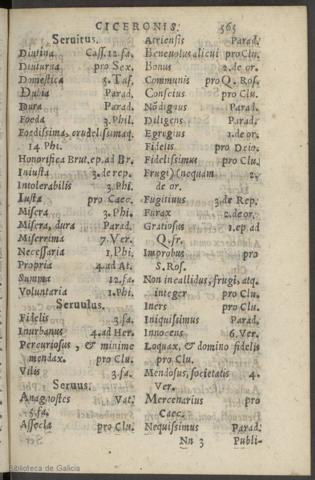 CICERONIS. 565
Seruitus.
Diutina Cass. 12. fa.
Diuturna pro Sex.
Domestica 5. Taf.
Dubia Parad.
Dura Parad.
Foeda 3. Phil.
Foedissima, crudelissimaq.
14 Phi.
Honorifica Brut. ep. ad Br.
Iniusta 3. de rep.
Intolerabilis 3. Phi.
Iusta pro Caec.
Misera 3. Phi.
Misera, dura Parad.
Miserrima 7. Ver.
Necessaria 1. Phi.
Propria 4. ad At.
Summa 12. fa.
Voluntaria 1. Phi.
Seruulus.
Fidelis 3. fa.
Inurbanus 4. ad Her.
Percuriosus, & minime
mendax. pro Clu.
Vilis 3. fa.
Seruus.
Anagnostes Vat.
5. fa.
Assecla pro Clu.
Atriensis Parad.
Beneuolus alicui pro Clu.
Bonus 2. de or.
Communis pro Q. Ros.
Conscius pro Clu.
Nõ dignus Parad.
Diligens Parad.
Egregius 1. de or.
Fidelis pro Deio.
Fidelissimus pro Clu.
Frugi) (nequam 2.
de or.
Fugitiuus 3. de Rep.
Furax 2. de or.
Gratiosus 1. ep ad
Q. fr.
Improbus pro
S. Ros.
Non ineallidus, frugi, atq.
integer pro Clu.
Iners pro Clu.
Iniquissimus Parad.
Innocens 6. Ver.
Loquax, & domino fidelis
pro Clu.
Mendosus, societatis 4.
Ver.
Mercenarius pro
Caec.
Nequissimus Parad.
Nn 3 Publi-
Biblioteca de Galicia